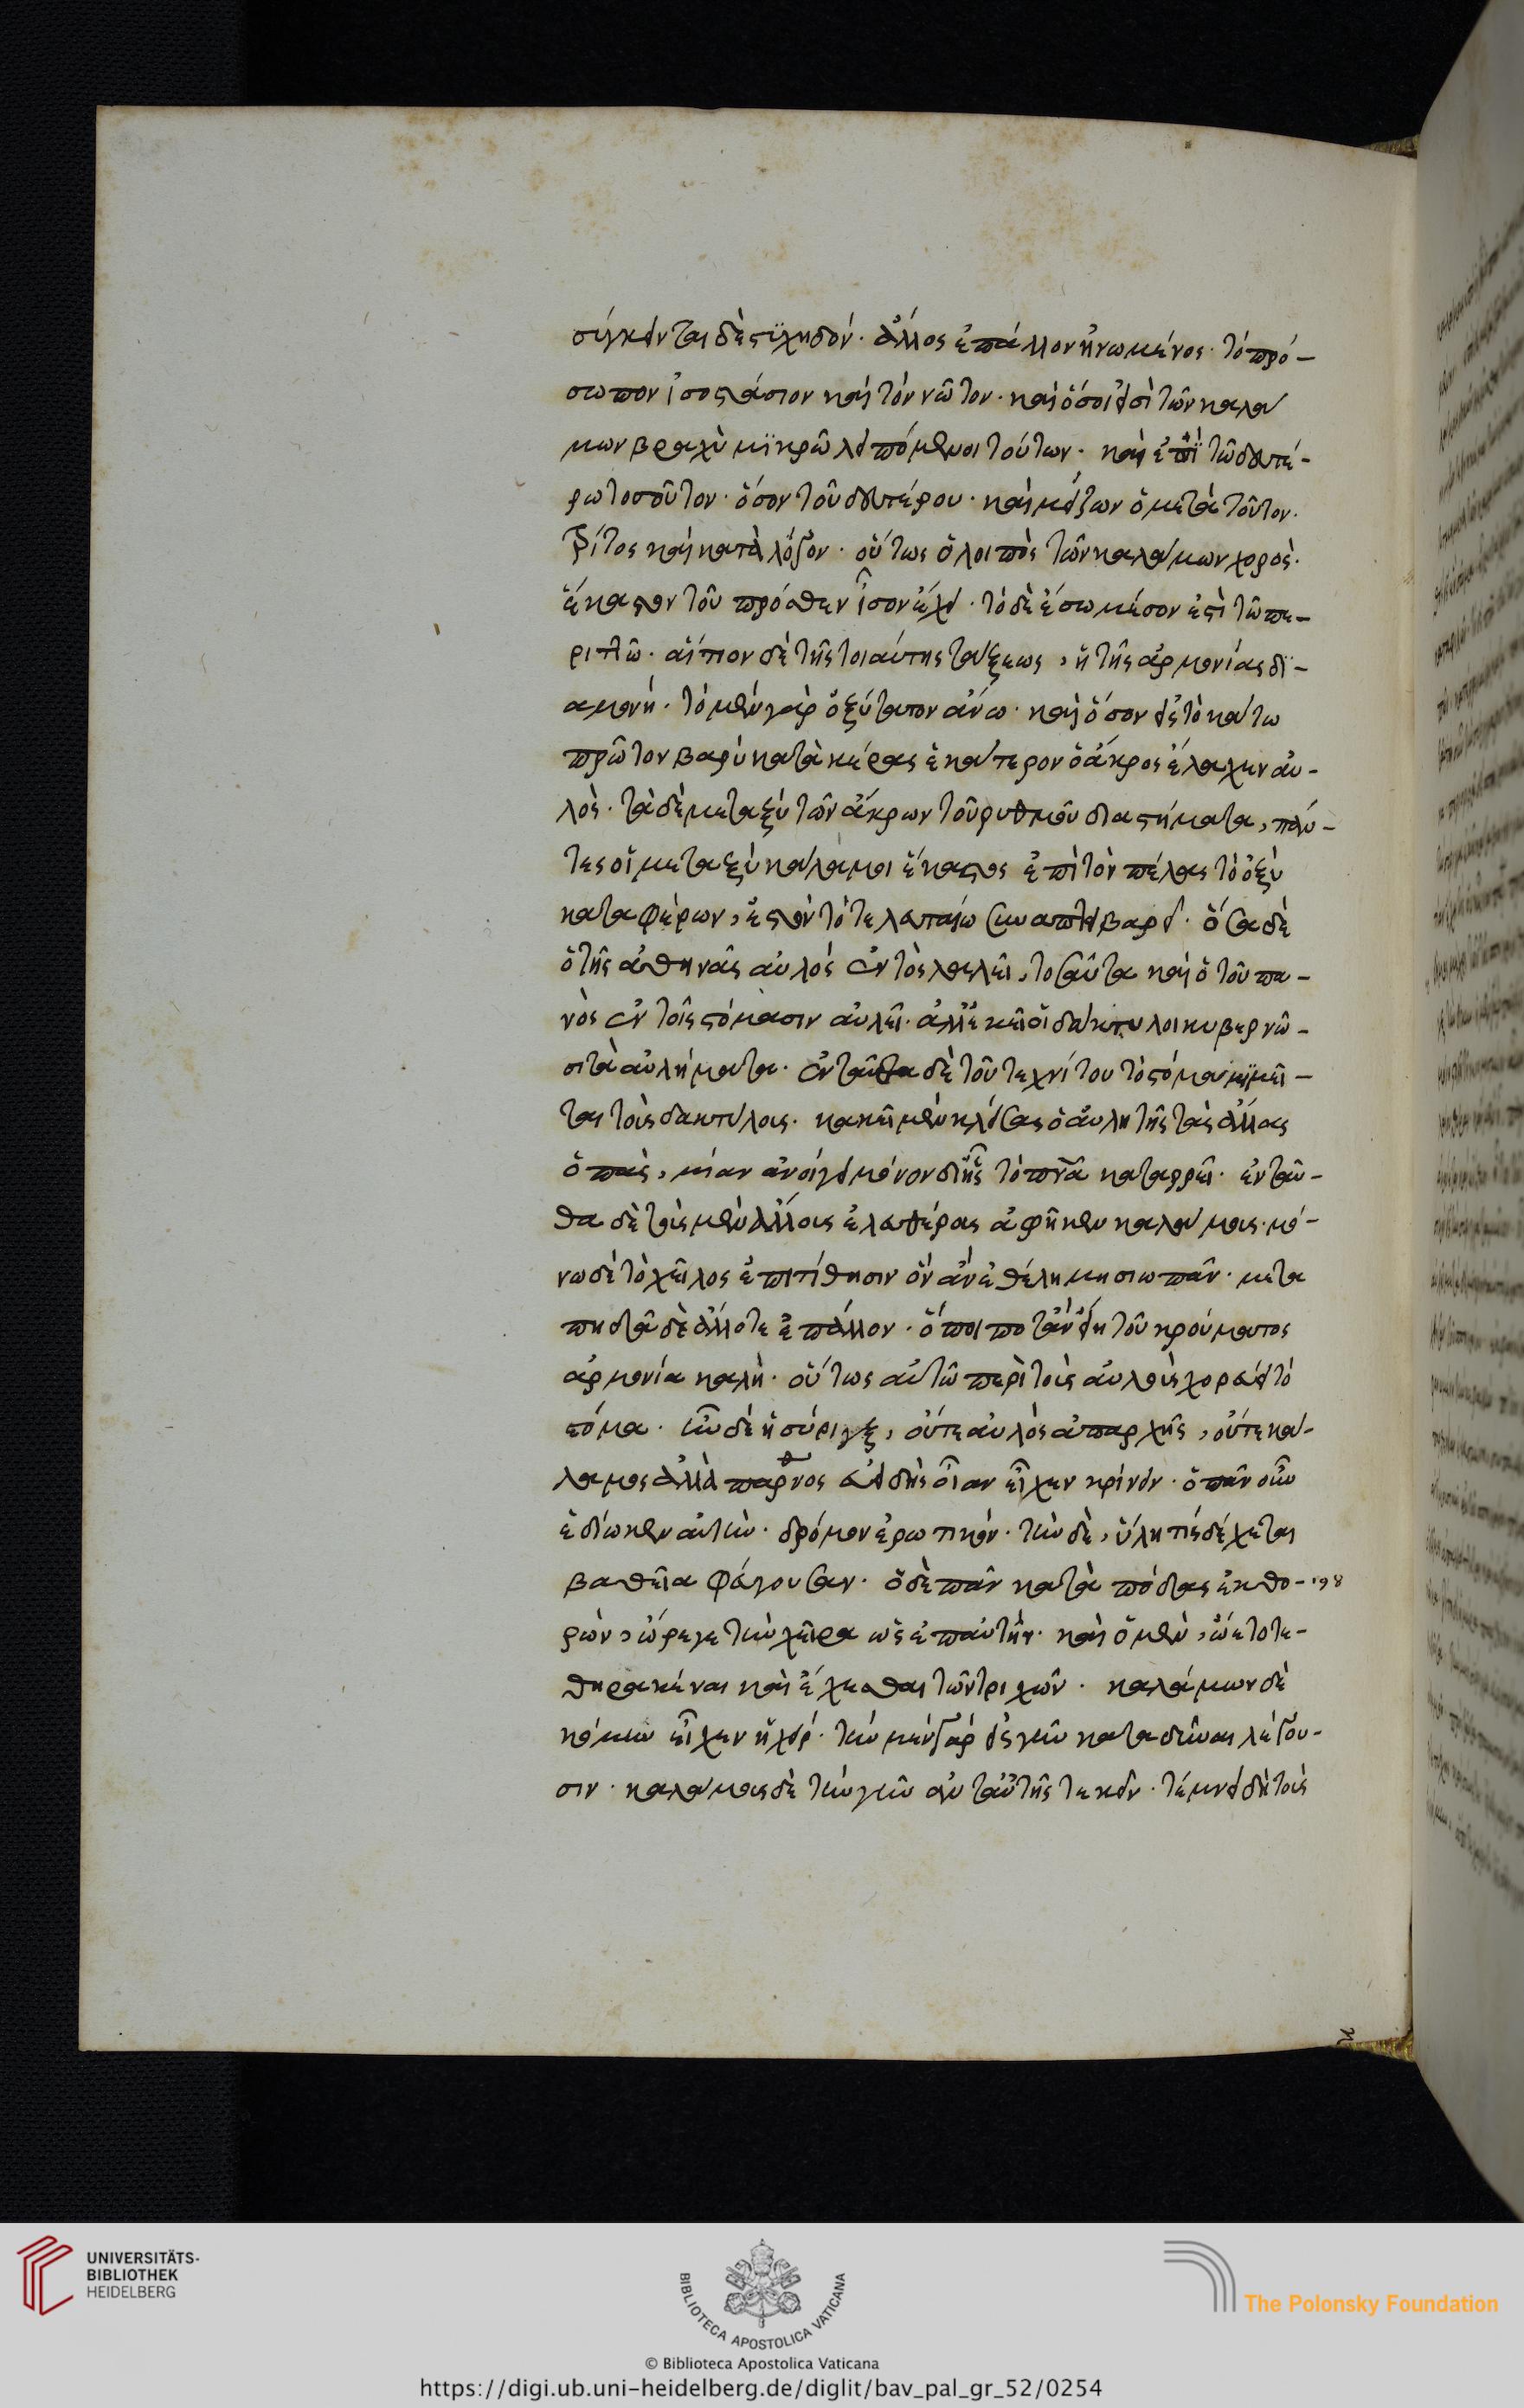 σύγκεινται δὲ στιχηδόν· ἄλλος ἐπάλλον ἡνωμένος· τὸ πρό-
σωπον ἰσοστάσιον καὶ τὸν νῶτον· καὶ ὅσοι εἰσὶ τῶν καλά
μων βραχὺ μϊκρῶ λειπόμενοι τούτων· καὶ ἐπὶ τῶ δευτέ-
ρω τοσοῦτον· ὅσον τοῦ δευτέρου· καὶ μείζων ὁ μετὰ τοῦτον·
τρίτος καὶ κατὰ λόγον· οὕτως ὁ λοιπὸς τῶν καλάμων χορὸς·
ἕκαστον τοῦ πρόσθεν ἶσον ἔχει· τὸ δὲ ἔσω μέσον ἐστὶ τῶ πε-
ριττῶ· αἴτιον δὲ τῆς τοιαύτης τάξεως, ἡ τῆς ἁρμονίας δϊ-
ανομή· τὸ μὲν γὰρ ὀξύτατον ἄνω· καὶ ὅσον εἰς τὸ κάτω
πρῶτον βαρὺ κατὰ κέρας ἑκάτερον ὁ ἄκρος ἔλαχεν αὐ-
λὸς· τὰ δὲ μεταξὺ τῶν ἄκρων τοῦ ρυθμοῦ διαστήματα, πάν-
τες οἱ μεταξὺ κάλαμοι ἕκαστος ἐπὶ τὸν πέλας τὸ ὀξὺ
καταφέρων, ἔστ' ἂν τὸ τελευταίω συνάπτει βαρεῖ· ὅσα δὲ
ὁ τῆς ἀθηνᾶς αὐλὸς ἐντὸς λαλεῖ, τοσαῦτα καὶ ὁ τοῦ πα-
νὸς ἐν τοῖς στόμασιν αὐλεῖ· ἀλλ' ἐκεῖ οἱ δάκτυλοι κυβερνῶ-
σι τὰ αὐλήματα· ἐνταῦθα δὲ τοῦ τεχνίτου τὸ στόμα μϊμεῖ-
ται τοὺς δακτύλους· κακεῖ μὲν κλείσας ὁ αὐλητῆς τὰς ἄλλας
ὀπὰς, μίαν ἀνοίγει μόνον δι' ἧς τὸ πνα καταρρεῖ· ἐνταῦ-
θα δὲ τοὺς μὲν ἄλλους ἐλευθέρας ἀφῆκεν καλάμους· μό-
νω δὲ τὸ χεῖλος ἐπιτίθησιν ὃν ἂν ἐθέλη μη σιωπᾶν· μετα
πηδᾶ δὲ ἄλλοτε ἐπάλλον· ὅποι ποτ' ἂν εἴη τοῦ κρούματος
ἁρμονία καλὴ· οὕτως αὐτῶ περὶ τοὺς αὐλοὺς χορεύει τὸ
στόμα· ἦν δὲ ἡ σύριγξ, οὔτε αὐλὸς ἀπαρχῆς, οὔτε κά-
λαμος ἀλλὰ παρθνος εὐειδὴς οἵαν εἶχεν κρίνειν· ὁ πᾶν οὖν
ἐδίωκεν αὐτὴν· δρόμον ἐρωτικόν· τὴν δὲ, ὕλη τὶς δέχεται
βαθεῖα φεύγουσαν· ὁ δὲ πᾶν κατὰ πόδας ἐκθο- 198
ρὼν, ὤρεγε τὴν χεῖρα ὡς ἐπ' αὐτὴν· καὶ ὁ μὲν, ὤετο τε-
θηρακέναι καὶ ἔχεσθαι τῶν τριχῶν· καλάμων δὲ
κόμην εἶχεν ἡ χεὶρ· τὴν μὲν γὰρ εἰς γῆν καταδῦναι λέγου-
σιν· καλάμους δὲ τὴν γῆν ἀντ' αὐτῆς τεκεῖν· τέμνει δὴ τοὺς